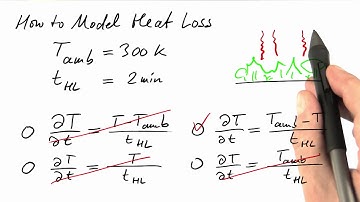 How to Model Heat Loss
T_amb = 300 K
t_HL = 2 min
∂T/∂t = (T - T_amb)/t_HL
∂T/∂t = (T_amb - T)/t_HL
∂T/∂t = T/t_HL
∂T/∂t = T_amb/t_HL